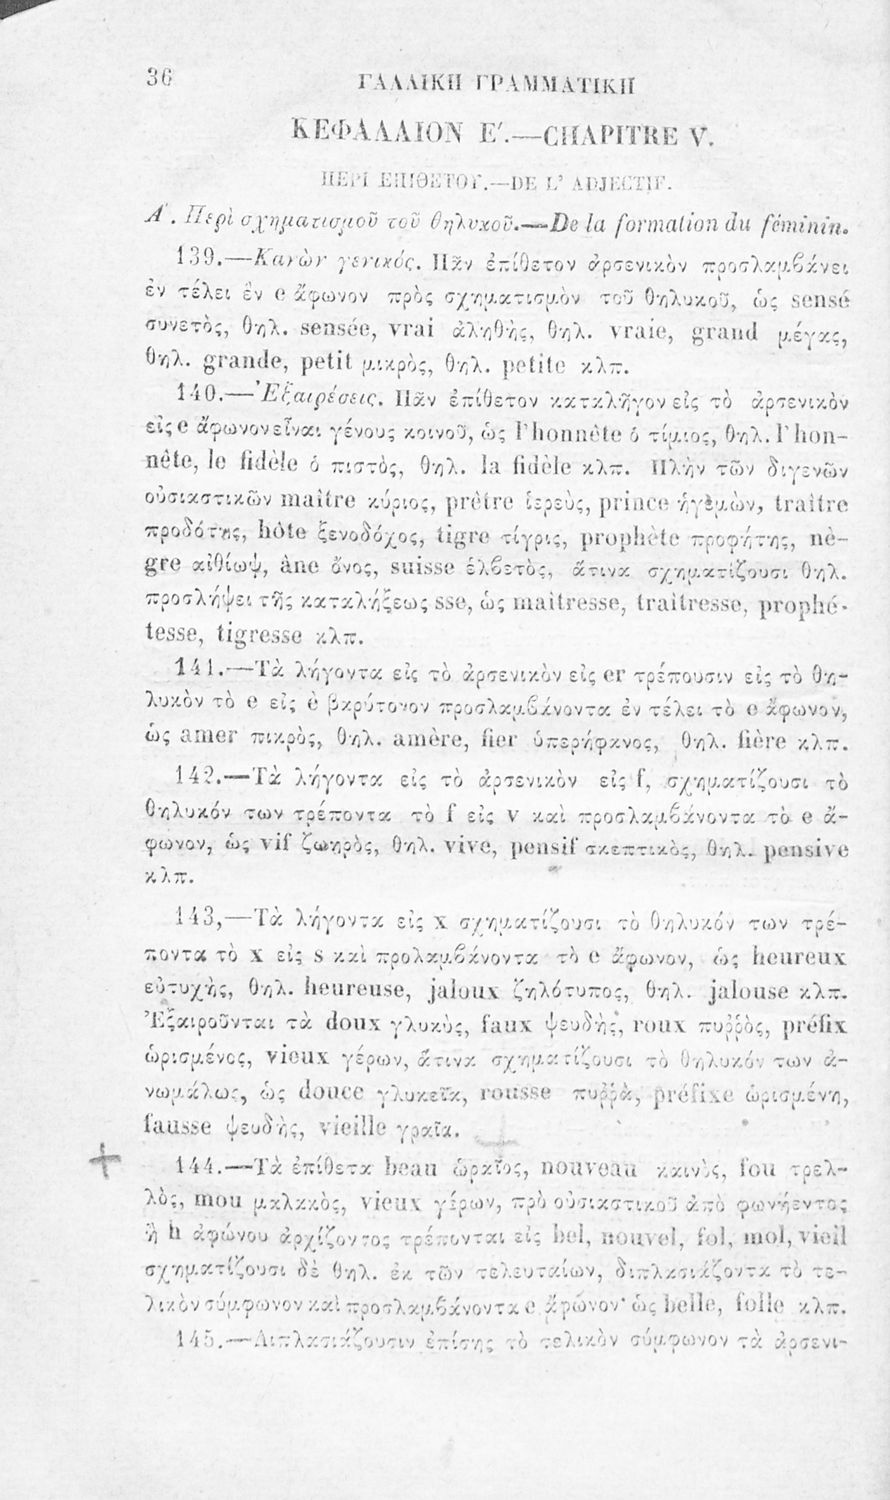 36
ΓΑΛΛΙΚΗ ΓΡΑΜΜΑΤΙΚΗ
ΚΕΦΑΛΑΙΟΝ Ε΄.—CHAPITRE V.
ΠΕΡΙ ΕΠΙΘΕΤΟΥ.—DE L' ADJECTIF.
Α΄. Περὶ σχηματισμοῦ τοῦ θηλυκοῦ.—De la formation du féminin.
139.—Κανὼν γενικός. Πᾶν ἐπίθετον ἀρσενικὸν προσλαμβάνει
ἐν τέλει ἓν e ἄφωνον πρὸς σχηματισμὸν τοῦ θηλυκοῦ, ὡς sensé
συνετὸς, θηλ. sensée, vrai ἀληθὴς, θηλ. vraie, grand μέγας,
θηλ. grande, petit μικρὸς, θηλ. petite κλπ.
140.—Ἐξαιρέσεις. Πᾶν ἐπίθετον καταλῆγον εἰς τὸ ἀρσενικὸν
εἰς e ἄφωνον εἶναι γένους κοινοῦ, ὡς l'honnête ὁ τίμιος, θηλ. l'hon-
nête, le fidèle ὁ πιστὸς, θηλ. la fidèle κλπ. Πλὴν τῶν διγενῶν
οὐσιαστικῶν maître κύριος, prêtre ἱερεὺς, prince ἡγεμὼν, traître
προδότης, hôte ξενοδόχος, tigre τίγρις, prophète προφήτης, nè-
gre αἰθίωψ, âne ὄνος, suisse ἑλβετὸς, ἅτινα σχηματίζουσι θηλ.
προσλήψει τῆς καταλήξεως sse, ὡς maîtresse, traîtresse, prophé-
tesse, tigresse κλπ.
141.—Τὰ λήγοντα εἰς τὸ ἀρσενικὸν εἰς er τρέπουσιν εἰς τὸ θη-
λυκὸν τὸ e εἰς è βαρύτονον προσλαμβάνοντα ἐν τέλει τὸ e ἄφωνον,
ὡς amer πικρὸς, θηλ. amère, fier ὑπερήφανος, θηλ. fière κλπ.
142.—Τὰ λήγοντα εἰς τὸ ἀρσενικὸν εἰς f, σχηματίζουσι τὸ
θηλυκόν των τρέποντα τὸ f εἰς v καὶ προσλαμβάνοντα τὸ e ἄ-
φωνον, ὡς vif ζωηρὸς, θηλ. vive, pensif σκεπτικὸς, θηλ. pensive
κλπ.
143,—Τὰ λήγοντα εἰς x σχηματίζουσι τὸ θηλυκόν των τρέ-
ποντα τὸ x εἰς s καὶ προλαμβάνοντα τὸ e ἄφωνον, ὡς heureux
εὐτυχὴς, θηλ. heureuse, jaloux ζηλότυπος, θηλ. jalouse κλπ.
Ἐξαιροῦνται τὰ doux γλυκὺς, faux ψευδὴς, roux πυῤῥὸς, préfix
ὡρισμένος, vieux γέρων, ἅτινα σχηματίζουσι τὸ θηλυκόν των ἀ-
νωμάλως, ὡς douce γλυκεῖα, rousse πυῤῥὰ, préfixe ὡρισμένη,
fausse ψευδὴς, vieille γραῖα.
144.—Τὰ ἐπίθετα beau ὡραῖος, nouveau καινὸς, fou τρελ-
λὸς, mou μαλακὸς, vieux γέρων, πρὸ οὐσιαστικοῦ ἀπὸ φωνήεντος
ἢ h ἀφώνου ἀρχίζοντος τρέπονται εἰς bel, nouvel, fol, mol, vieil
σχηματίζουσι δὲ θηλ. ἐκ τῶν τελευταίων, διπλασιάζοντα τὸ τε-
λικὸν σύμφωνον καὶ προσλαμβάνοντα e ἄφωνον· ὡς belle, folle κλπ.
145.—Διπλασιάζουσιν ἐπίσης τὸ τελικὸν σύμφωνον τὰ ἀρσενι-